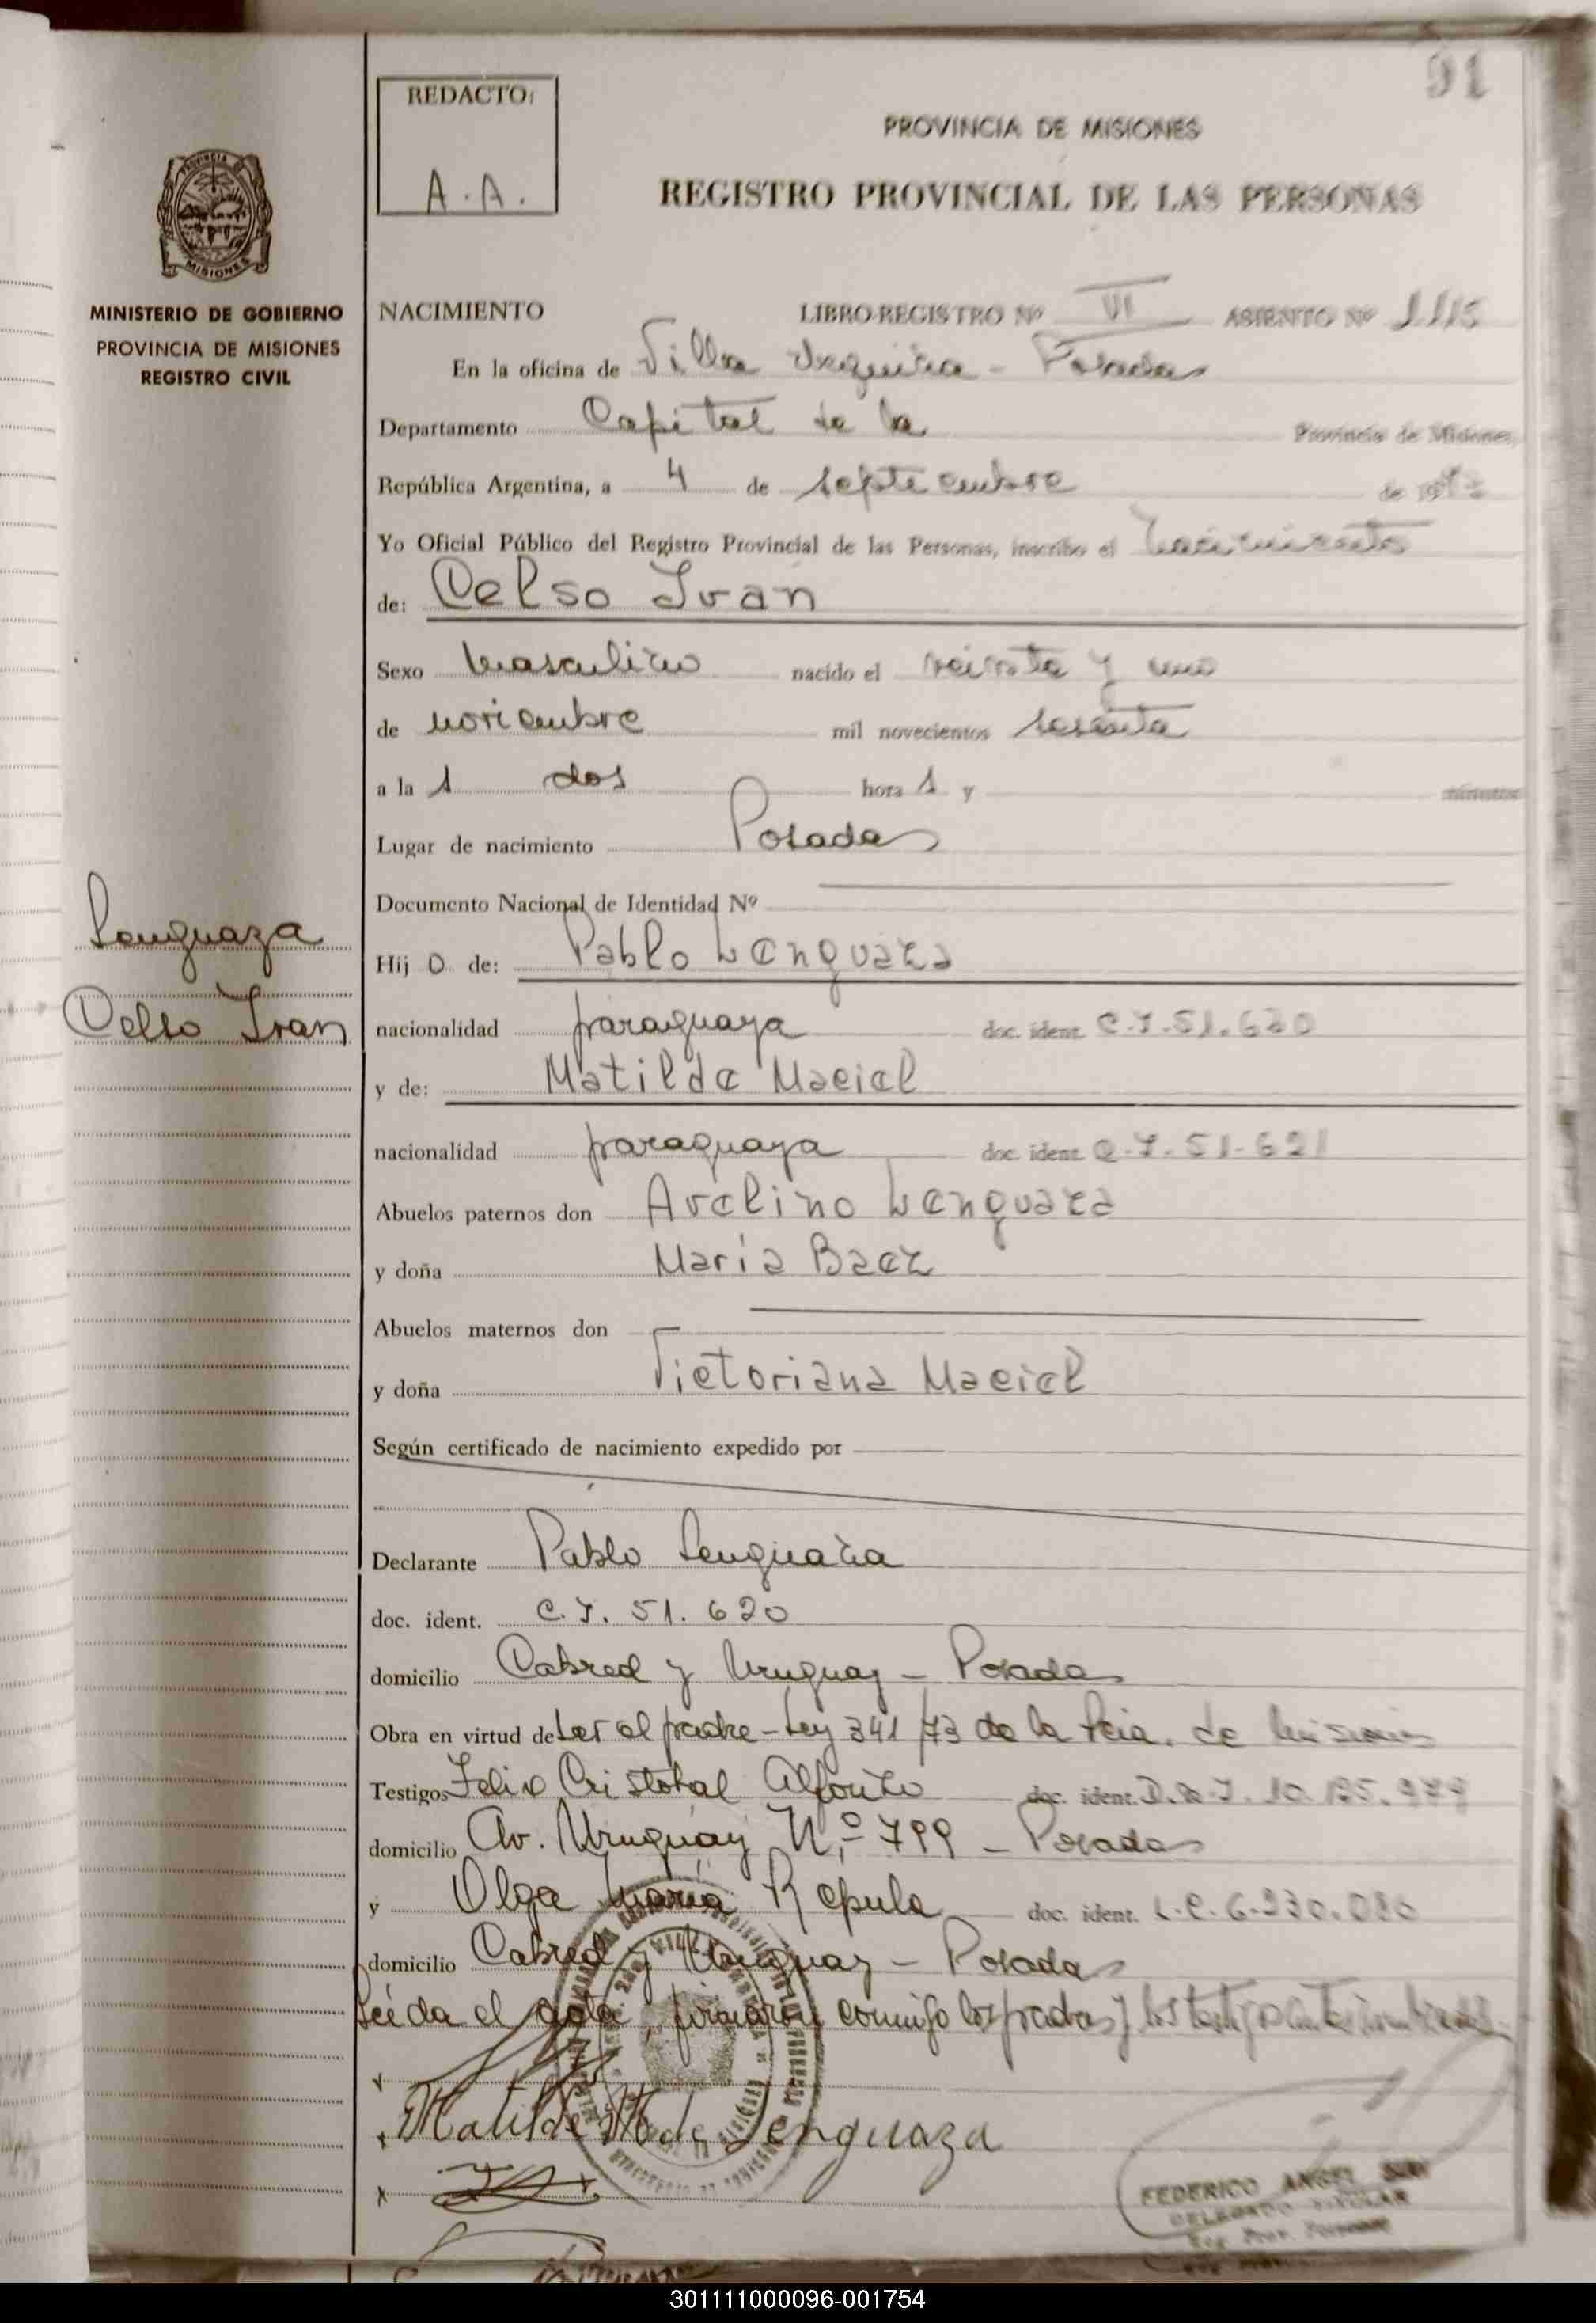 91
REDACTO:
A. A.
PROVINCIA DE MISIONES
REGISTRO PROVINCIAL DE LAS PERSONAS
PROVINCIA DE
MISIONES
MINISTERIO DE GOBIERNO
PROVINCIA DE MISIONES
REGISTRO CIVIL
NACIMIENTO LIBRO-REGISTRO Nº VI ASIENTO Nº 1115
En la oficina de Villa Urquiza - Posadas
Departamento Capital de la Provincia de Misiones,
República Argentina, a 4 de septiembre de
Yo Oficial Público del Registro Provincial de las Personas, inscribo el nacimiento
de: Celso Ivan
Sexo masculino nacido el y uno
de noviembre mil novecientos sesenta
a la s dos hora s y minutos
Lugar de nacimiento Posadas
Documento Nacional de Identidad Nº
Lenguaza
Celso Ivan
Hij o de: Pablo Lenguaza
nacionalidad paraguaya doc. ident. C.I. 51.620
y de: Matilde Maciel
nacionalidad paraguaya doc. ident. C.I. 51.621
Abuelos paternos don Avelino Lenguaza
y doña María Baez
Abuelos maternos don
y doña Victoriana Maciel
Según certificado de nacimiento expedido por
Declarante Pablo Lenguaza
doc. ident. C.I. 51.620
domicilio Cabred y Uruguay - Posadas
Obra en virtud de ser el padre - Ley 341/73 de la Pcia. de Misiones
Testigos Felix Cristobal Alfonzo doc. ident. D.N.I. 10.195.979
domicilio Av. Uruguay N.º 799 - Posadas
y Olga María Repula doc. ident. L.C. 6.230.020
domicilio Cabred y Uruguay - Posadas
Leída el acta, firmaron conmigo los padres y los testigos
x
x Matilde M de Lenguaza
x
FEDERICO ANGEL
DELEGADO TITULAR
Reg. Prov. Personas
301111000096-001754